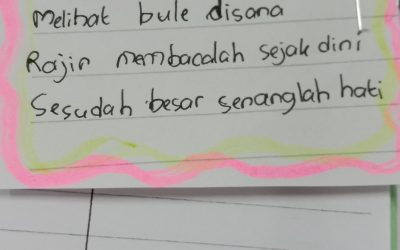 Melihat bule disana
Rajin membacalah sejak dini
Sesudah besar senanglah hati